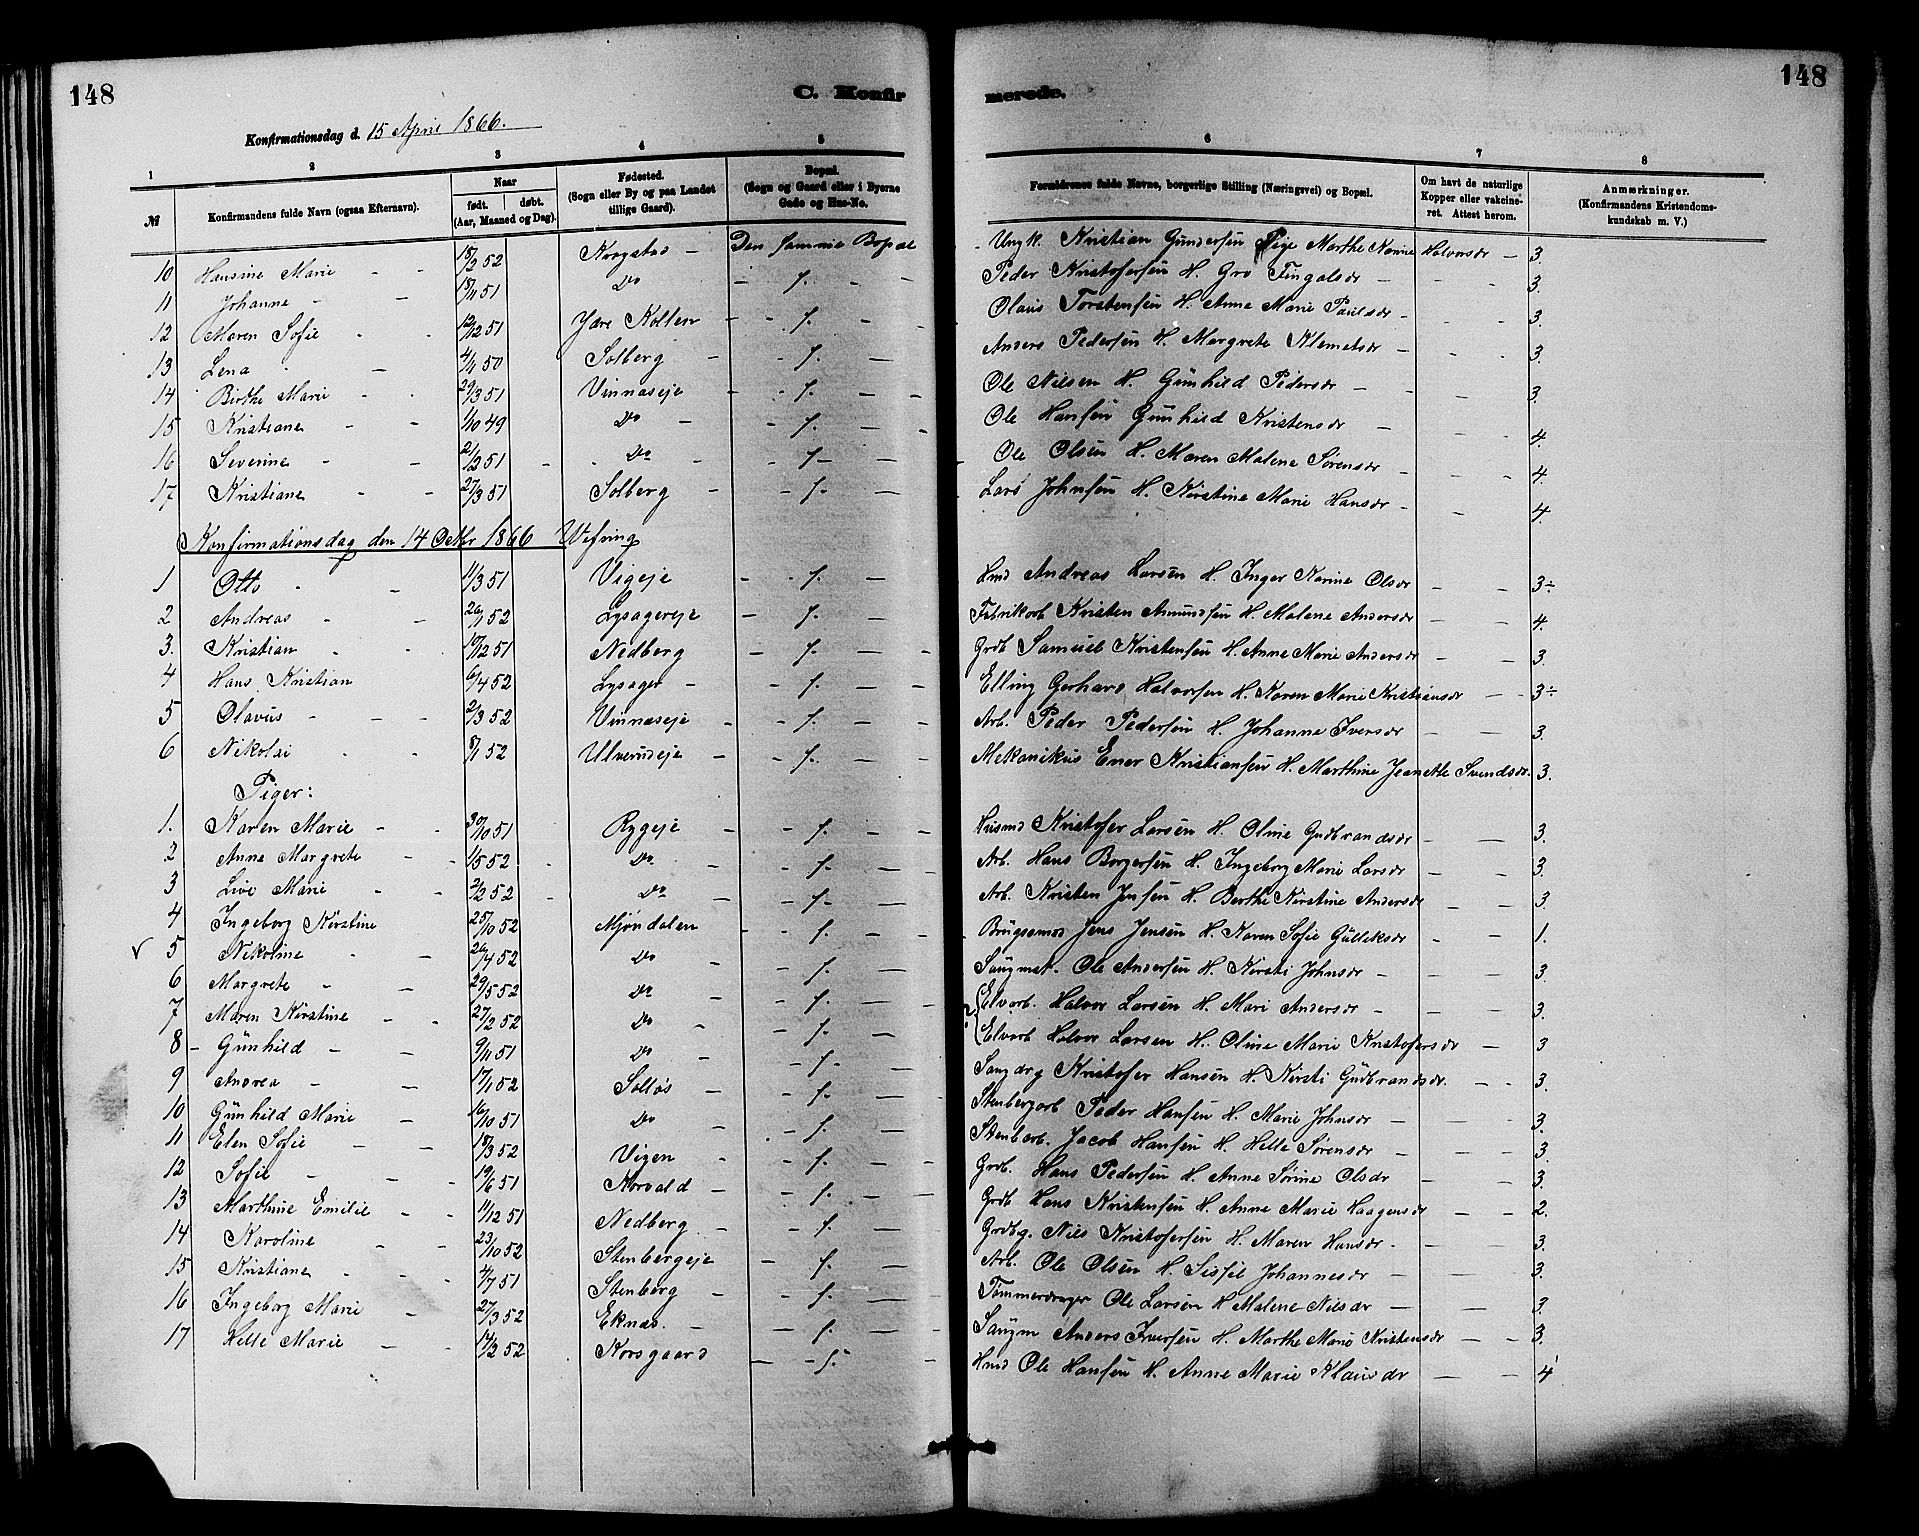 148
C. Konfir merede.
148
Konfirmationsdag d. 15 April 1866.
1 2 3 4 5 6 7 8
№ Konfirmandens fulde Navn (ogsaa Efternavn). Naar født. døbt. (Aar, Maaned og Dag). Fødested. (Sogn eller By og paa Landet tillige Gaard). Bopæl. (Sogn og Gaard eller i Byerne Gade og Hus-No. Forældrenes fulde Navne, borgerlige Stilling (Næringsvei) og Bopæl. Om havt de naturlige Kopper eller vakcineret. Attest herom. Anmærkninger. (Konfirmandens Kristendomskundskab m. V.)
10 Hansine Marie - - 18/2 52 Krogstad - Den samme Bopæl - Ungk. Kristian Gundersen Pige Marthe Karine Halvorsdr - 3.
11 Johanne - - 18/11 51 Do - 〃 - Peder Kristofersen H. Gro Fingalsdr - - - 3.
12 Maren Sofie - - 12/12 51 Jare Kollen - - 〃 - - Olaus Torstensen H. Anne Marie Paulsdr - - - 3.
13 Lena - - 4/11 50 Solberg - - 〃 - Anders Pedersen H. Margrete Klemetsdr - - - 3.
14 Birthe Marie - - 29/3 51 Vinnaseje - - 〃 - - Ole Nilsen H. Gunhild Pedersdr - - 3.
15 Kristiane - - 1/10 49 Do - - 〃 - - Ole Hansen Gunhild Kristensdr - - - 4.
16 Severine - - 21/2 51 - - Do - 〃 - - Ole Olsen H. Maren Malene Sorensdr - - - 4.
17 Kristiane - - 27/3 51 Solberg - - 〃 - Lars Johnsen H. Kirstine Marie Hansdr - - - 4.
Konfirmationsdag den 14 Octbr 1866 Wefring
1 Otto - - 11/3 51 Vigeje - - 〃 - Hmd Andreas Larsen H. Inger Karine Olsdr - - 3÷
2 Andreas - - 26/1 52 Lysagereje - - 〃 - Fabrikarb Kristen Amundsen H. Malene Andersdr - - 4.
3. Kristian - - 10/12 51 Nedberg - 〃 - - Grdb Samuel Kristensen H. Anne Marie Andersdr - - 3.
4 Hans Kristian 6/4 52 Lysager - - 〃 - - Elling Gerhard Halvorsen H. Karen Marie Kristiansdr - - 3÷
5 Olavus - - - 2/3 52 Vinnaseje - - 〃 - - Arb. Peder Pedersen H. Johanne Iversdr - - 3.
6 Nikolai - - 8/1 52 Ulverudeje - - 〃 - - Mekanikus Ener Kristiansen H. Marthine Jeanette Svendsdr. 3.
Piger:
1. Karen Marie - - 30/10 51 Rygeje - - 〃 - - Husmd Kristofer Larsen H. Oline Gudbrandsdr - - 3.
2 Anne Margrete - - 1/5 52 - Do - - 〃 - - Arb. Hans Borgersen H. Ingeborg Marie Larsdr - - 3.
3 Live Marie - - 2/2 52 - Do - - 〃 - - Arb. Kristen Jensen H. Berthe Kirstine Andersdr - - 3.
4 Ingeborg Kirstine 25/10 52 Mjøndalen - - 〃 - - Brugsmd Jens Jensen H. Karen Sofie Gulliksdr - - 1.
✓ 5 Nikoline - - 26/4 52 Do - - 〃 - - Saugmst. Ole Andersen H. Kirsti Johnsdr - - 3.
6 Margrete - - 29/5 52 Do - - 〃 - - Elvarb. Halvor Larsen H. Mari Andersdr - - 3.
7 Maren Kirstine - - 27/2 52 Do - - 〃 - - Elvarb Halvor Larsen H. Oline Marie Kristofersdr - 3
8 - Gunhild - - 9/11 51 Do - 〃 - - Saugdrg Kristofer Hansen H. Kirsti Gudbrandsdr. - - 3.
9 Andrea - - 17/1 52 Solløs - - 〃 - - Stenbergarb Peder Hansen H. Marie Johnsdr - - 3.
10 Gunhild Marie - 16/10 51 Do - - 〃 - - Stenbarb. Jacob Hansen H. Helle Sorensdr - - 3.
11 Elen Sofie - - 18/3 52 Vigen - - 〃 - - Grdb. Hans Pedersen H. Anne Sørine Olsdr - - 3.
12 Sofie - - - 19/6 51 Korvald - - 〃 - - Grdb Hans Kristensen H. Anne Marie Haagensdr - - 2.
13 Marthine Emilie - - 11/12 51 Nedberg - - 〃 - - Grdbg. Nils Kristofersen H. Maren Hansdr - - - 3.
14 Karoline - - 23/10 52 Stenbergeje - 〃 - - Arb. Ole Olsen H. Sissil Johannesdr - - 3.
15 Kristiane - - - 4/7 51 Stenberg - - 〃 - - Tømmerdrager Ole Larsen H Malene Nilsdr - - 3.
16 Ingeborg Marie - 27/3 52 Eknæs. - - 〃 - - Saugm Anders Iversen H. Marthe Marie Kristensdr - - 3.
17 Helle Marie - - 14/2 52 Korsgaard - - 〃 - Hmd Ole Hansen H. Anne Marie Klausdr - - 4